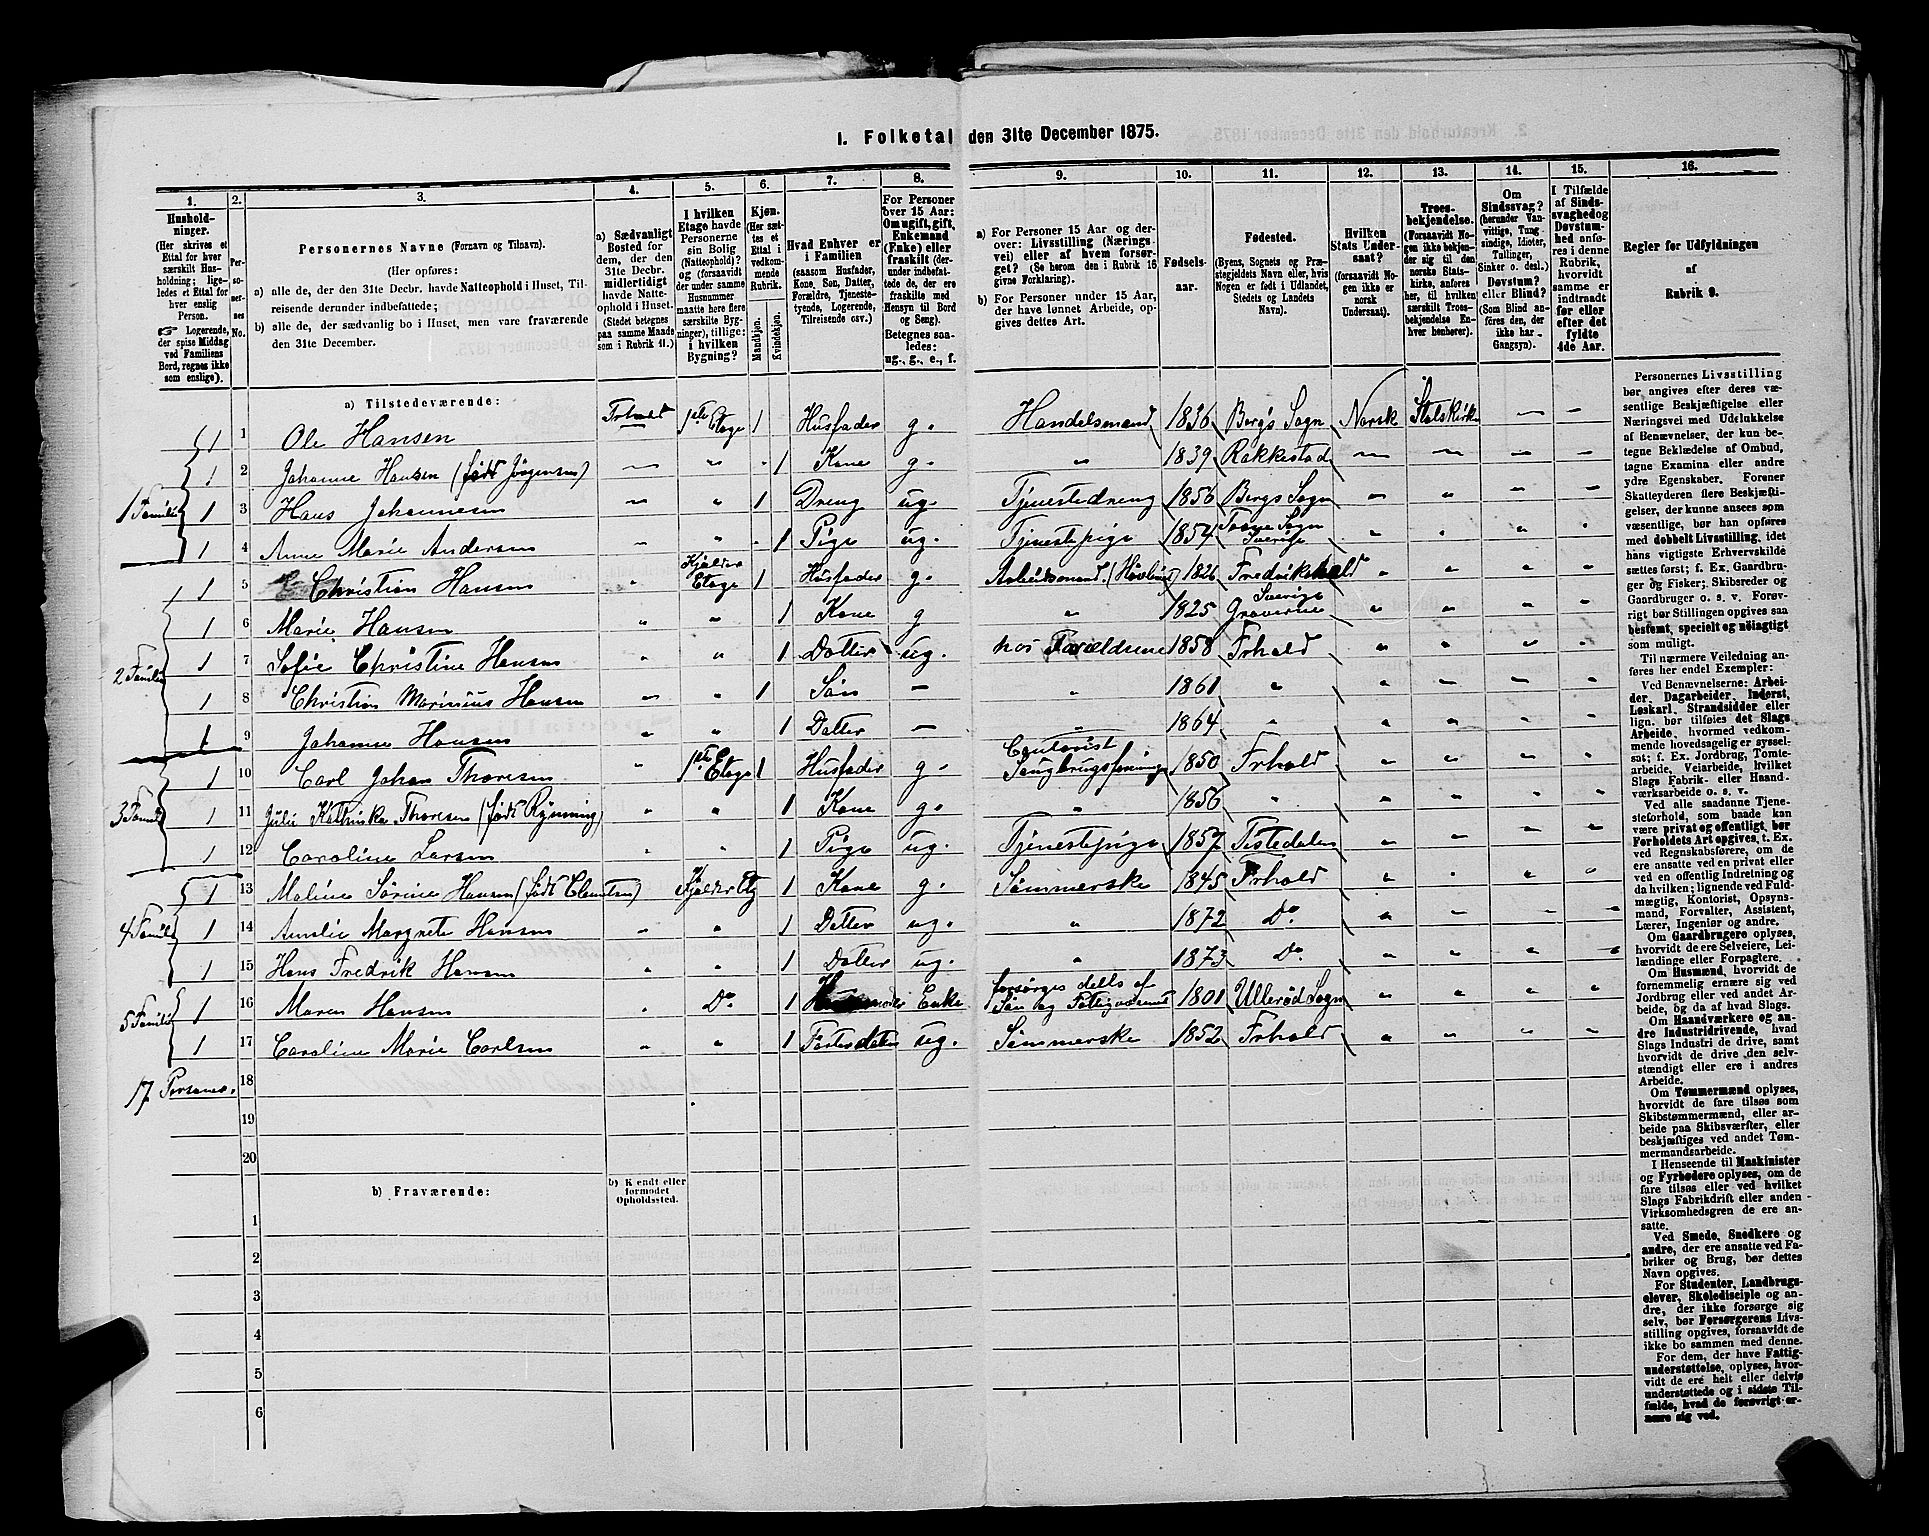 1. Folketal den 31te December 1875.
1. 2. 3. 4. 5. 6. 7. 8. 9. 10. 11. 12. 13. 14. 15. 16.
Husholdninger. (Her skrives et Ettal for hver særskilt Husholdning; ligeledes et Ettal for hver enslig Person. ☞ Logerende, der spise Middag ved Familiens Bord, regnes ikke som enslige).
Personernes No.
Personernes Navne (Fornavn og Tilnavn).
(Her opføres:
a) alle de, der den 31te Decbr. havde Natteophold i Huset, Tilreisende derunder indbefattede;
b) alle de, der sædvanlig bo i Huset, men vare fraværende den 31te December.
a) Sædvanligt Bosted for dem, der den 31te Decbr. midlertidigt havde Natteophold i Huset. (Stedet betegnes paa samme Maade som i Rubrik 11.)
I hvilken Etage havde Personerne sin Bolig (Natteophold)? og (forsaavidt der under samme Husnummer maatte høre flere særskilte Bygninger), tillige: i hvilken Bygning?
Kjøn. (Her sættes et Ettal i vedkommende Rubrik.
Mandkjøn. Kvindekjøn.
Hvad Enhver er i Familien (saasom Husfader, Kone, Søn, Datter, Forældre, Tjenestetyende, Logerende, Tilreisende osv.)
For Personer over 15 Aar: Om ugift, gift, Enkemand (Enke) eller fraskilt (derunder indbefattede de, der ere fraskilte med Hensyn til Bord og Seng). Betegnes saaledes: ug., g., e., f.
a) For Personer 15 Aar og derover: Livsstilling (Næringsvei) eller af hvem forsørget? (Se herom den i Rubrik 16 givne Forklaring).
b) For Personer under 15 Aar, der have lønnet Arbeide, opgives dettes Art.
Fødselsaar.
Fødested. (Byens, Sognets og Præstegjeldets Navn eller, hvis Nogen er født i Udlandet, Stedets og Landets Navn).
Hvilken Stats Undersaat? (forsaavidt Nogen ikke er norsk Undersaat).
Troesbekjendelse. (Forsaavidt Nogen ikke bekjender sig til den norske Statskirke, anføres her, til hvilken særskilt Troesbekjendelse Enhver henhører).
Om Sindssvag? (herunder Vanvittige, Tungsindige, Idioter, Tullinger, Sinker o. desl.) Døvstum? eller Blind? (Som Blind anføres den, der ikke har Gangsyn).
I Tilfælde af Sindssvaghed og Døvstumhed anføres i denne Rubrik, hvorvidt samme er indtraadt før eller efter det fyldte 4de Aar.
Regler for Udfyldningen af Rubrik 9.
a) Tilstedeværende:
1 1 Ole Hansen Frhald 1ste Etage 1 Husfader g. Handelsmand 1836 Bergs Sogn Norsk Statskirke — —
1 2 Johanne Hansen (født Jørgensen) — " 1 Kone g. " 1839 Rakkestad — — — —
1 Familie 1 3 Hans Johannesen — " 1 Dreng ug. Tjenestedreng 1856 Bergs Sogn " " " "
1 4 Anne Marie Andersen — " 1 Pige ug. Tjenestepige 1854 Sogn Sverige " " " "
1 5 Christian Hansen " Kjelder Etage 1 Husfader g. Arbeidsmand 1826 Fredrikshald " " " "
1 6 Marie Hansen " " 1 Kone g " 1825 Graverne Sverige " " " "
2 Familie 1 7 Sofie Christine Hansen " " 1 Datter ug. hos Forældrene 1858 Frhald " " " "
1 8 Christian Marinius Hansen " " 1 Søn — " 1861 " " " " "
1 9 Johanne Hansen " " 1 Datter — " 1864 " " " " "
1 10 Carl Johan Thoresen " 1ste Etage 1 Husfader g. Contorist Saugbrugsforeninge 1850 Frhald " " " "
3 Famili 1 11 Julie Kathinka Thoresen (født Rynning) " " 1 Kone g. " 1856 " " " " "
1 12 Caroline Larsen " " 1 Pige ug. Tjenestepige 1857 Tistedalen " " " "
1 13 Maline Sørine Hansen (født Clemtsen) " Kjelder Etg 1 Kone g. Sømmerske 1845 Frhald " " " "
4 Famili 1 14 Amalie Margrete Hansen " " 1 Datter ug. " 1872 Do. " " " "
1 15 Hans Fredrik Hansen " " 1 Datter ug. " 1873 Do. " " " "
5 Famili 1 16 Maren Hansen " Do. 1 Enke forsørges dells af Søn og Fattigvæsenet 1801 Ullerød Sogn " " " "
1 17 Caroline Marie Carlsen " " 1 ug. Sømmerske 1852 Frhald " " " "
17 Personer. 18
19
20
b) Fraværende: b) Kjendt eller formodet Opholdssted.
1
2
3
4
5
6
Personernes Livsstilling
bør angives efter deres væ-
sentlige Beskjæftigelse eller
Næringsvei med Udelukkelse
af Benævnelser, der kun be-
tegne Beklædelse af Ombud,
tagne Examina eller andre
ydre Egenskaber. Forener
Skatteyderen flere Beskjæfti-
gelser, der kunne ansees som
væsentlige, bør han opføres
med dobbelt Livsstilling, idet
hans vigtigste Erhvervskilde
sættes først; f. Ex. Gaardbru-
ger og Fisker; Skibsreder og
Gaardbruger o. s. v. Forøv-
rigt bør Stillingen opgives saa
bestemt, specielt og nøiagtigt
som muligt.
Til nærmere Veiledning an-
føres her endel Exempler:
Ved Benævnelserne: Arbei-
der, Dagarbeider, Inderst,
Løskarl, Strandsidder eller
lign. bør tilføies det Slags
Arbeide, hvormed vedkom-
mende hovedsagelig er syssel-
sat; f. Ex. Jordbrug, Tomte-
arbeide, Veiarbeide, hvilket
Slags Fabrik- eller Haand-
værksarbeide o. s. v.
Ved alle saadanne Tjene-
steforhold, som baade kan
være privat og offentligt, bør
Forholdets Art opgives, t. Ex.
ved Regnskabsførere, om de
ere ansatte ved en privat eller
ved en offentlig Indretning og
da hvilken; lignende ved Fuld-
mægtig, Kontorist, Opsyns-
mand, Forvalter, Assistent,
Lærer, Ingeniør og andre.
Om Gaardbrugere oplyses,
hvorvidt de ere Selveiere, Lei-
lændinge eller Forpagtere.
Om Husmænd, hvorvidt de
fornemmelig ernære sig ved
Jordbrug eller ved andet Ar-
beide, og da af hvad Slags.
Om Haandværkere og an-
dre Industridrivende, hvad
Slags Industri de drive, samt
hvorvidt de drive den selv-
stændigt eller ere i andres
Arbeide.
Om Tømmermænd oplyses,
hvorvidt de fare tilsøs som
Skibstømmermænd, eller ar-
beide paa Skibsværfter, eller
beskjæftiges ved andet Tøm-
mermandsarbeide.
I Henseende til Maskinister
og Fyrbødere oplyses, om de
fare tilsøs eller ved hvilket
Slags Fabrikdrift eller anden
Virksomhedsgren de ere an-
satte.
Ved Smede, Snedkere og
andre, der ere ansatte ved Fa-
briker og Brug, bør dettes
Navn opgives.
For Studenter, Landbrugs-
elever, Skoledisciple og an-
dre, der ikke forsørge sig
selv, bør Forsørgerens Livs-
stilling opgives, forsaavidt de
ikke bo sammen med denne.
For dem, der have Fattig-
understøttelse, oplyses, hvor-
vidt de ere helt eller delvis
understøttede og i sidste Til-
fælde, hvad de forøvrigt er-
nære sig ved.